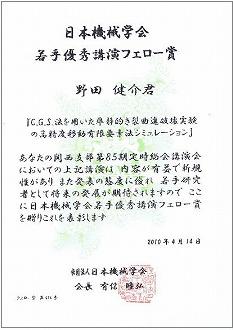 日本機械学会
若手優秀講演フェロー賞
野田 健介君
『C.G.S.法を用いた
の高精度移動有限要素法シミュレーション』
あなたの関西支部第85期定時総会講演会
においての上記講演は 内容が有益で新規
性があり また発表の態度に優れ 若手研究
者として将来の発展が期待されますので ここ
に日本機械学会若手優秀講演フェロー賞
を贈りこれを表彰します
2010年4月14日
社団法人日本機械学会
会長 有信 睦弘